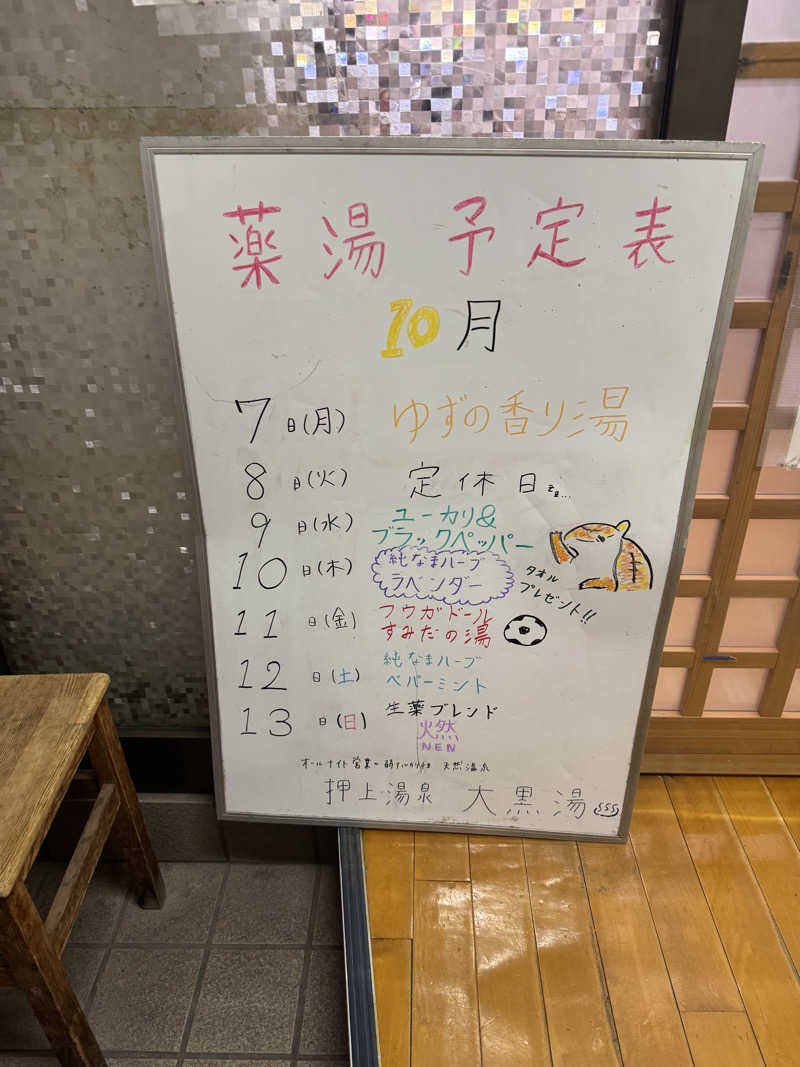 薬湯予定表
10月
7日(月) ゆずの香り湯
8日(火) 定休日zz...
9日(水) ユーカリ&
ブラックペッパー
10日(木) 純なまハーブ
ラベンダー
タオル
プレゼント!!
11日(金) フウガドール
すみだの湯
12日(土) 純なまハーブ
ペパーミント
13日(日) 生薬ブレンド
燃
NEN
オールナイト営業 天然温泉
押上温泉 大黒湯